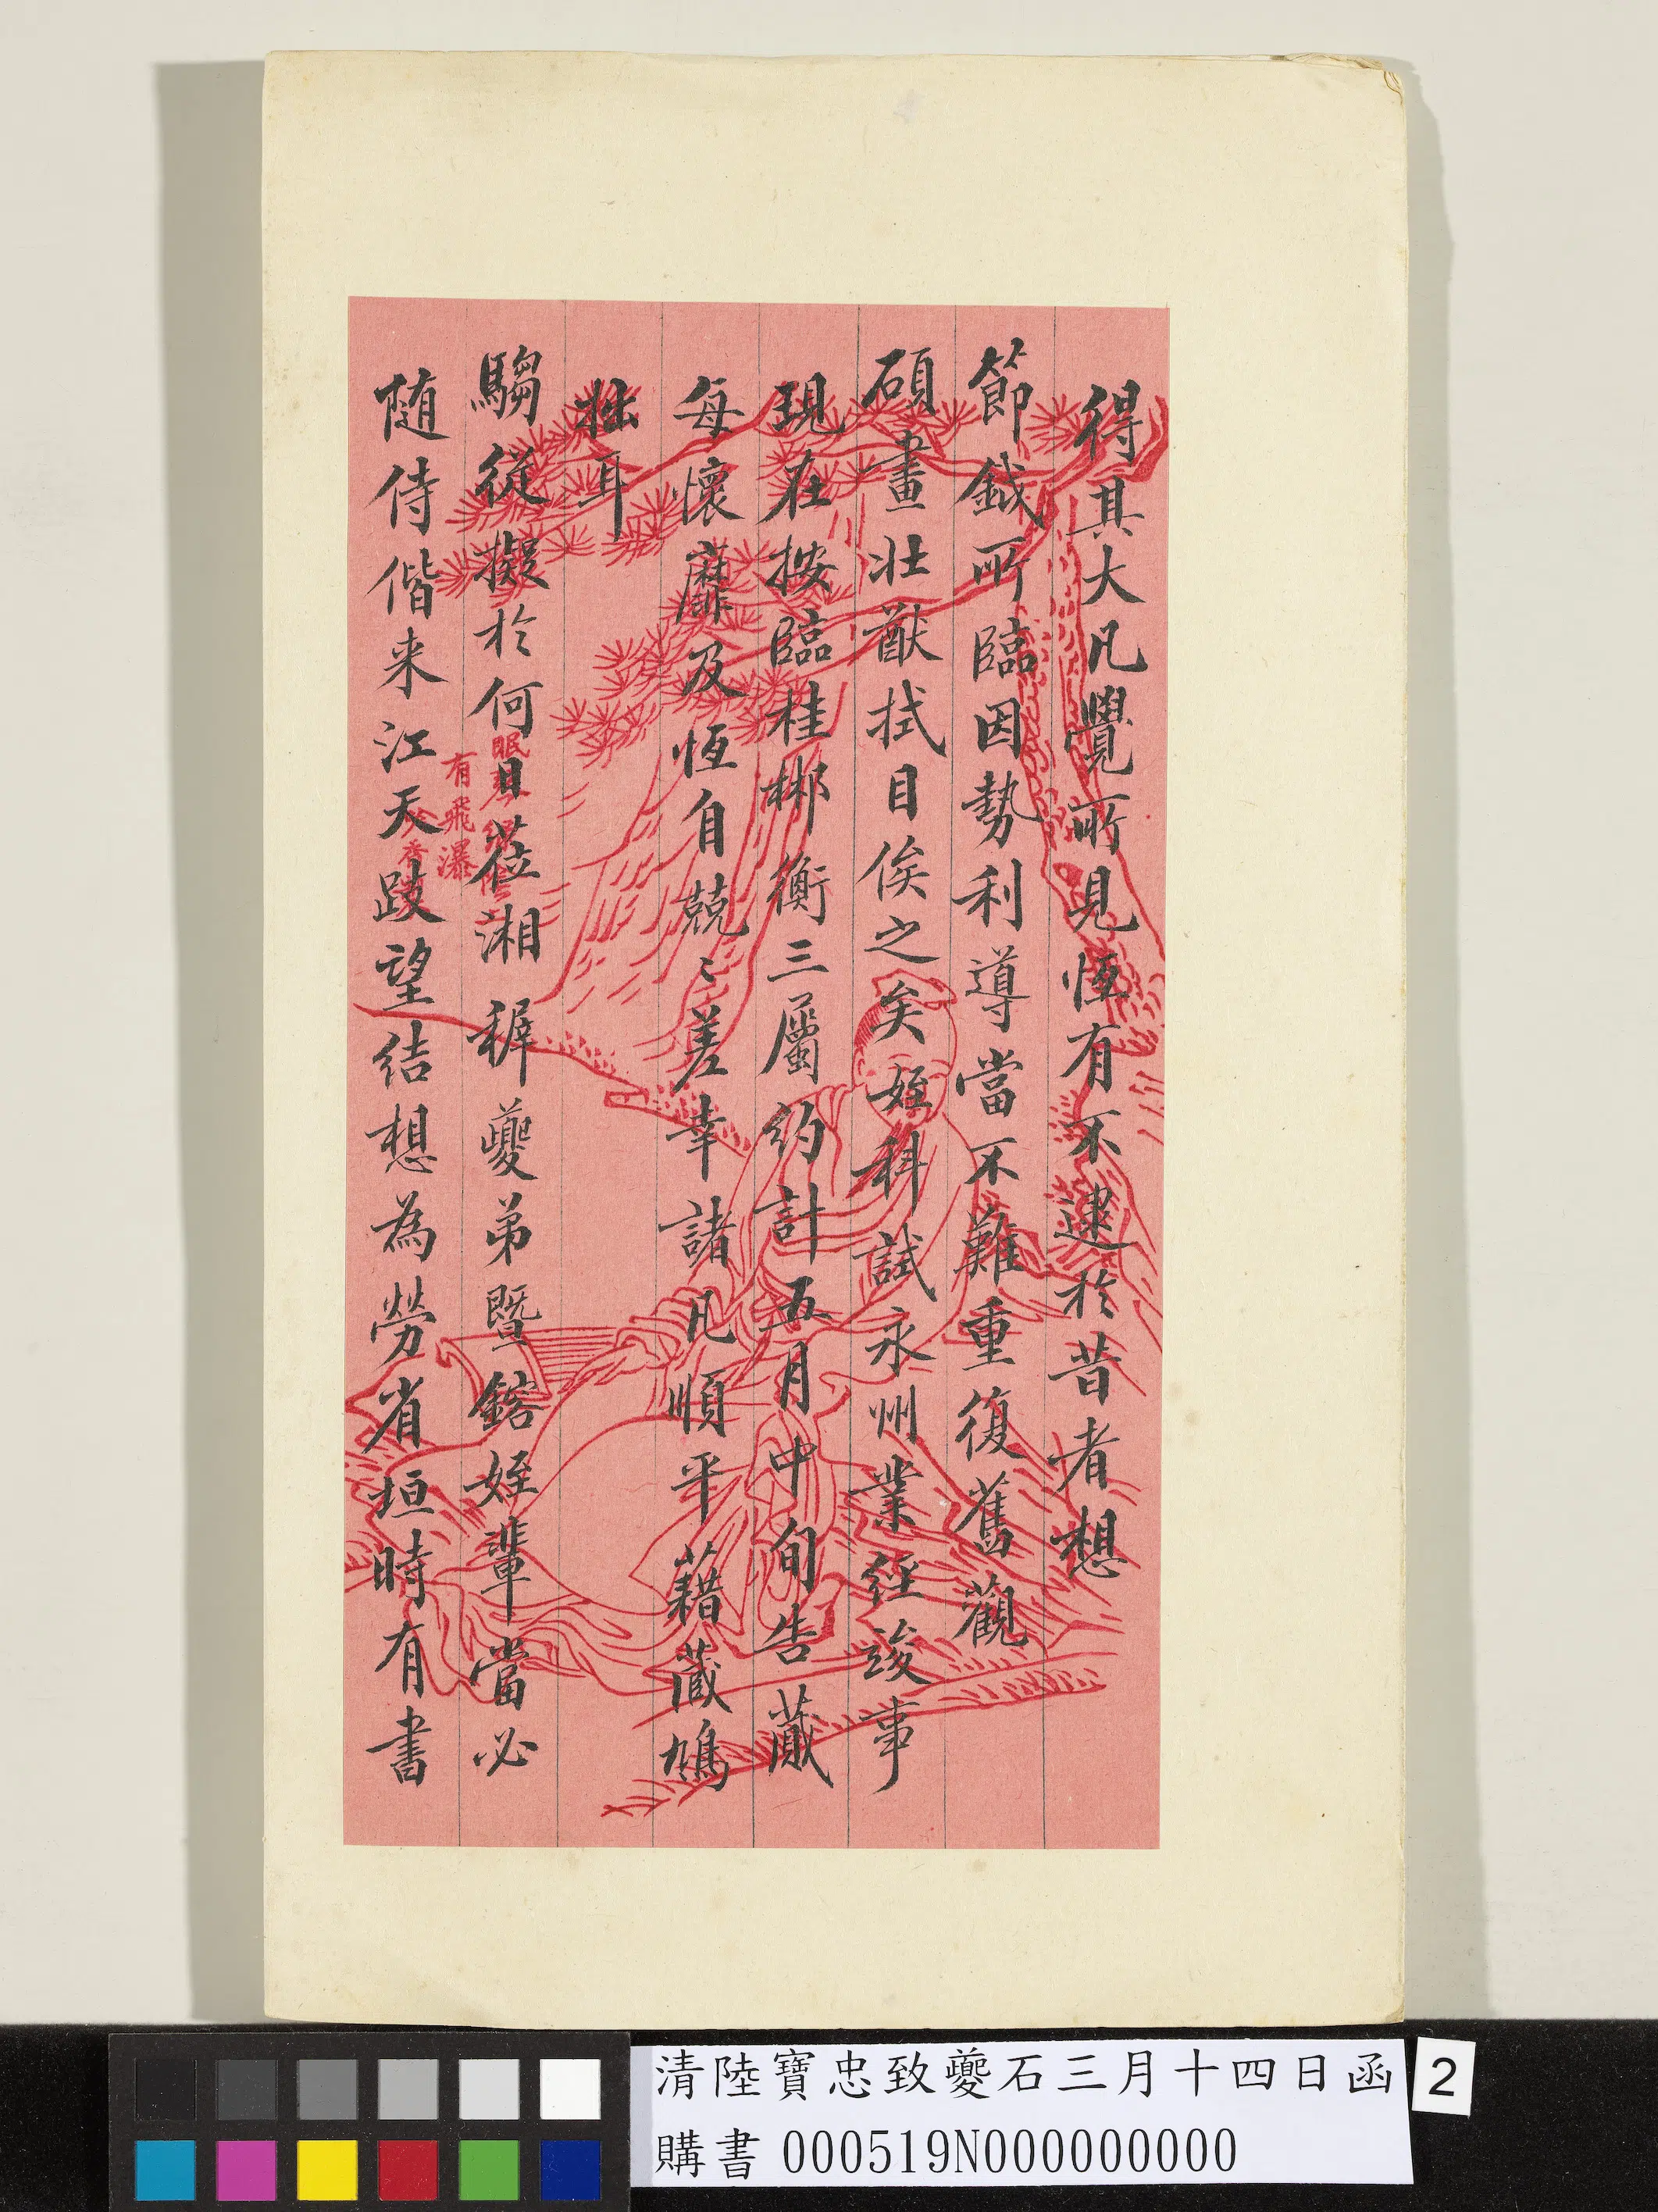 得其大凡覺所見恆有不逮於昔者想
節鉞所臨因勢利導當不難重復舊觀
碩畫壯猷拭目俟之矣姪科試永州業經竣事
現在按臨桂郴衡三屬約計五月中旬告蕆
每懷靡及恆自兢〻差幸諸凡順平藉蕆鳩
拙耳
騶從擬於何日莅湘穉夔弟暨鎔姪輩當必
随侍偕来江天跂望結想為勞省垣時有書
眠琴綠陰
有飛瀑
清陸寶忠致夔石三月十四日函
購書 000519N000000000
2